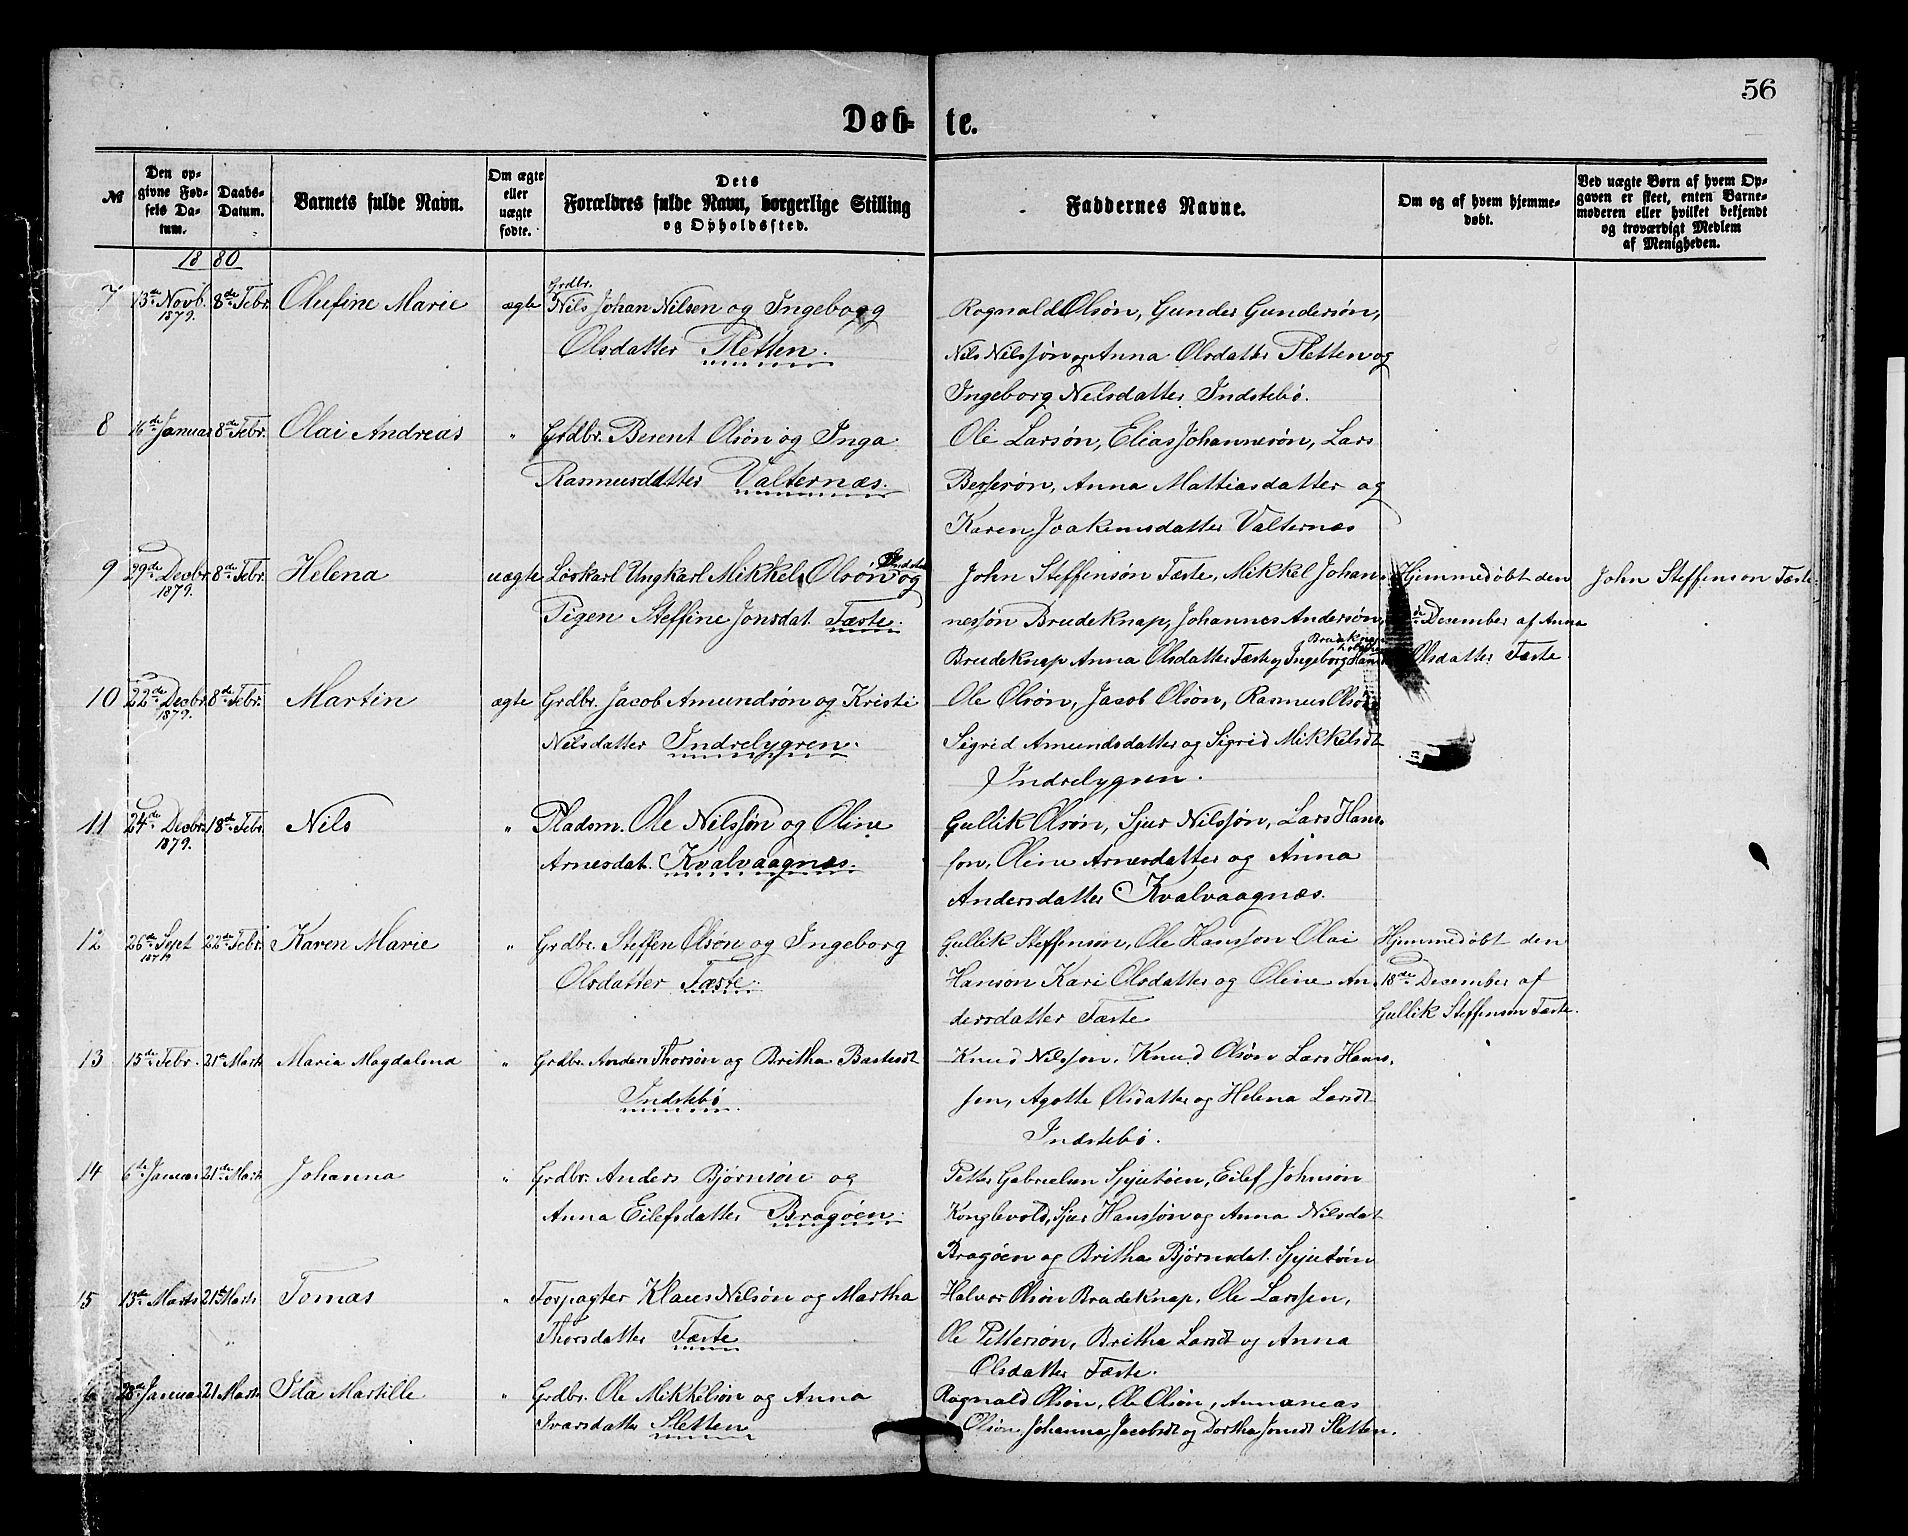 56
Døb- te.
№
Den opgivne Fødsels Datum.
Daabs-Datum.
Barnets fulde Navn.
Om ægte eller uægte fødte.
Dets Forældres fulde Navn, borgerlige Stilling og Opholdssted.
Faddernes Navne.
Om og af hvem hjemmedøbt.
Ved uægte Børn af hvem Opgaven er skeet, enten Barnemoderen eller hvilket bekjendt og troværdigt Medlem af Menigheden.
1880
7 13de Novb. 1879. 8de Febr. Olufine Marie ægte Grdbr. Nils Johan Nilsen og Ingeborg
Olsdatter Sletten.
Rognald Olsøn, Gunder Gundersøn,
Nils Nilssøn og Anna Olsdatter Sletten og
Ingeborg Nilsdatter Indstebø.
8 16de Januar 8de Febr. Olai Andreas " Grdbr. Berent Olsøn og Inga
Rasmusdatter Valternæs.
Ole Larsøn, Elias Johannesøn, Lars
Bersesøn, Anna Mattiasdatter og
Karen Joakimsdatter Valternæs
9 29de Decbr. 1879. 8de Febr. Helena uægte Løskarl Ungkarl Mikkel Olsøn og
Pigen Steffine Jonsdat. Tæste.
John Steffensøn Tæste, Mikkel Johan-
nessøn Brudeknap, Johannes Andersøn,
Brudeknap Anna Olsdatter Tæste og Ingeborg Brudeknap
Hjemmedøbt den
December af Anna
Olsdatter Tæste
John Steffenson Tæste.
10 22de Decbr. 1879. 8de Febr. Martin ægte Grdbr. Jacob Amundsøn og Kristi
Nilsdatter Indrelygren.
Ole Olsøn, Jacob Olsøn, Rasmus Olsøn
Sigrid Amundsdatter og Sigrid Mikkelsdt
Indrelygren.
11 24de Decbr. 1879. 18de Febr. Nils " Pladsm. Ole Nilssøn og Oline
Arnesdat. Kvalvaagnæs.
Gullik Olsøn, Sjur Nilssøn, Lars Hans-
søn, Oline Arnesdatter og Anna
Andersdatter Kvalvaagnæs.
12 26de Sept 1879 22de Febr. Karen Marie " Grdbr. Steffen Olsøn og Ingeborg
Olsdatter Tæste.
Gullik Steffensøn, Ole Hanssøn Olai
Hansøn Kari Olsdatter og Oline An-
dersdatter Tæste
Hjemmedøbt den
18de December af
Gullik Steffensøn Tæste.
13 15de Febr. 21de Marts Maria Magdalena " Grdbr. Anders Thorsøn og Britha Bastesdt
Indstebø.
Knud Nilssøn, Knud Olsøn Lars Hans-
søn, Agotte Olsdatter og Helena Larsdt
Indstebø.
14 6te Januar 21de Marts Johanna " Grdbr. Anders Bjørnsøn og
Anna Eilefsdatter Bragøen.
Petter Gabrielsen Spjutøen, Eilef Johnsøn
Konglevold, Sjur Hanssøn og Anna Nilsdat
Bragøen og Britha Bjørnsdat. Spjutøen
15 13de Marts 21de Marts Tomas " Forpagter Klaus Nilsøn og Martha
Thorsdatter Tæste
Halvor Olsøn Brudeknap, Ole Larssen,
Ole Pettersøn, Britha Larsdt og Anna
Olsdatter Tæste.
28de Januar 21 Marts Ida Martille " Grdbr. Ole Mikkelsøn og Anna
Ivarsdatter Sletten
Rognald Olsøn, Ole Olsøn, Annanias
Olsøn, Johanna Jacobsdt og Dortha Jonsdt Sletten.